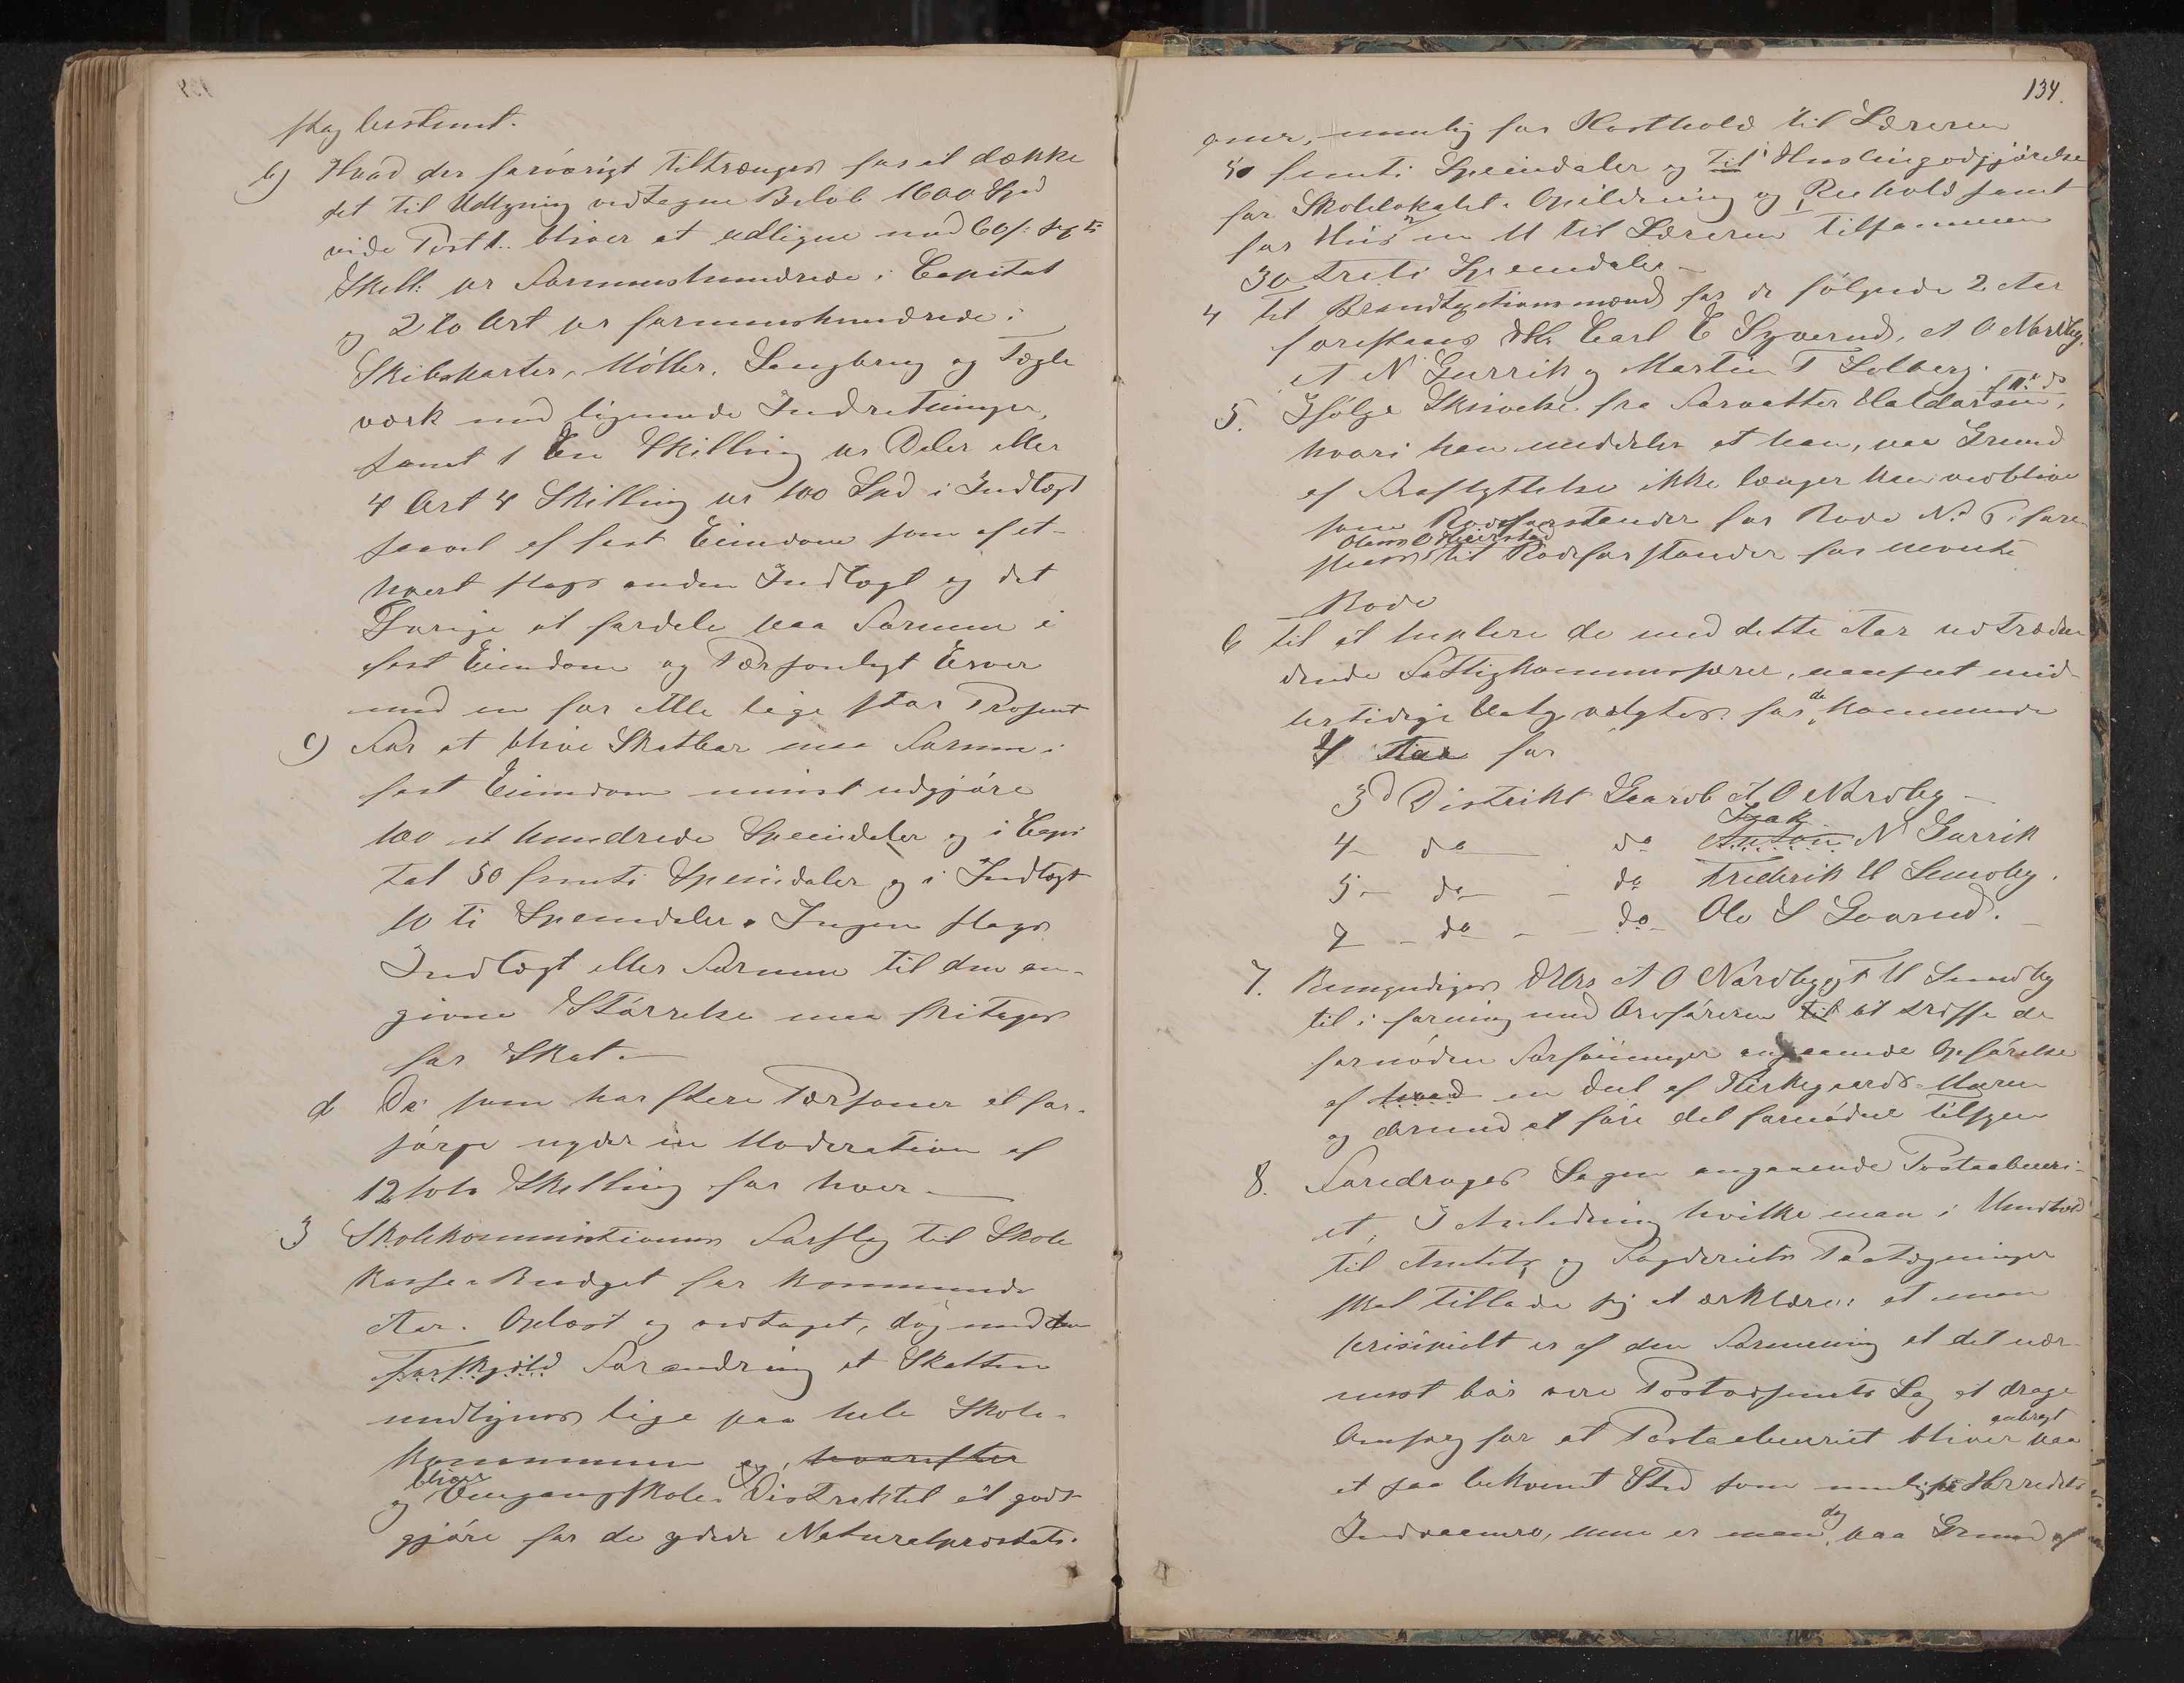 slag bestemt.
b) Hvad der forøvrigt tiltrænges for at dække
det til Udligning vedtagne Beløb 1600 Spd
vide Post 1. bliver at udligne med 60/: sexti
Skill: pr Formueshundrede i Capital
og 2 to Ort pr formueshundrede i
Skibsparter, Møller, Saugbrug og Tegle
værk med lignende Indretninger,
samt 1 En Skilling pr Daler eller
4 Ort 4 Skilling pr 100 Spd i Indtægt
saavel af fast Eiendom som af et-
hvert slags anden Indtægt og det
Øvrige at fordele paa Formue i
fast Eiendom og Personligt Erver
med en for Alle lige stor Prosent
c) For at blive Skatbar maa Formue i
fast Eiendom minst udgjøre
100 et hundrede Speciedaler og i Capi
tal 50 femti Speciedaler og i Indtægt
10 ti Speciedaler. Ingen slags
Indtægt eller Formue til den an-
givne Størrelse maa fritages
for Skat.
d De som har flere Personer at for-
sørge nyder en Moderation af
12 tolv Skilling for hver
3 Skolekommistionens Forslag til Skole
kasse Budget for kommende
Aar. Oplæst og vedtaget, dog med den
Forskjæld Forandring at Skatten
udlignes lige paa hele Skole-
kommunen og, hvorefter
bliver
og Omgangsskole Distriktet at godt
gjøre for de ydede Naturalprestati-
134.
oner, nemlig for Kosthold til Læreren
50 femti Speciedaler og til Huslingodgjørelse
for Skolelokalet. Opildning og Renhold samt
for Huus m M til Læreren tilsammen
30 treti Speciedaler
4 til Brandtaxtionsmænd for de følgende 2 Aar
foreslaaes Hr. Carl C Syverud, A O Nordby,
A N Gurrik og Martin T Solberg.
5. Ifølge Skrivelse fra Forvalter Haldorsen,
hvori han meddeler at han, paa Grund
af Fraflyttelse ikke længer kan vedblive
som Rodeforstander for Rode No 6. fore-
slaaes til Rodeforstander for nevnte
Rode
6 til at suplere de med dette Aar udtræde
dende Fattigkommissærer, anseet mid-
lertidige Valg valgtes for de kommende
4 Aar for
3d Distrikt Gaarb A O Nordby
Isak
4 - do - do Anton N Gurrik
5 - do - do Frederik M Sundby.
7 - do - do Ole S Gaarud.
7. Bemyndiges DHrr A O Nordby og F M Sundby
til i forening med Ordføreren til at træffe de
fornødne Forføininger angaaende Opførelse
af hvad en Deel af Kirkegaards Muren
og dermed at føre det fornødne tilsyn
8. Foredroges Sagen angaaende Postaabneri-
et, I Anledning hvilke man i Henhold
til Amtets og Fogderiets Paategninger
skal tillade sig at erklære: at man
prisipielt er af den Formening at det nær-
mest bør være Postvæsenets Sag at drage
Omsorg for at Postaabneriet bliver anbragt paa
et saa bekvemt Sted som muligt Herredets
Indvaanere, men er man dog, paa Grund af